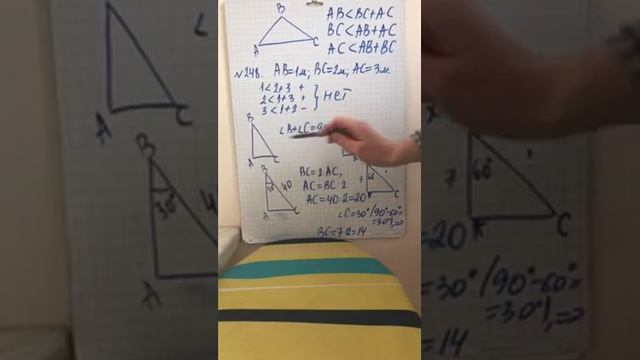 B
A
C
AB<BC+AC
BC<AB+AC
AC<AB+BC
№248. AB=1м; BC=2м; AC=3м.
1<2+3 +
2<1+3 +
3<1+2 -
} нет
B
A
C
∠B+∠C=9
B
30°
40
A
C
BC=2·AC,
AC=BC:2
AC=40:2=20
7
60°
?
C
∠C=30°/90°-60°=
=30°/,=>
BC=7·2=14